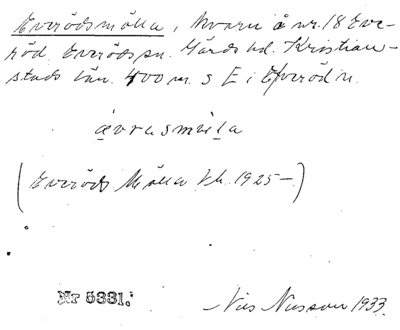 Everödsmölla, kvarn å nr. 18 Eve-
röd. Everöds sn. Gärds hd. Kristian-
stads län. 400 m. s E i Everöd n.
ävrasmöla
(Everöds Mölla tk. 1925-)
Nr 5331.
Nils Nilsson 1933.